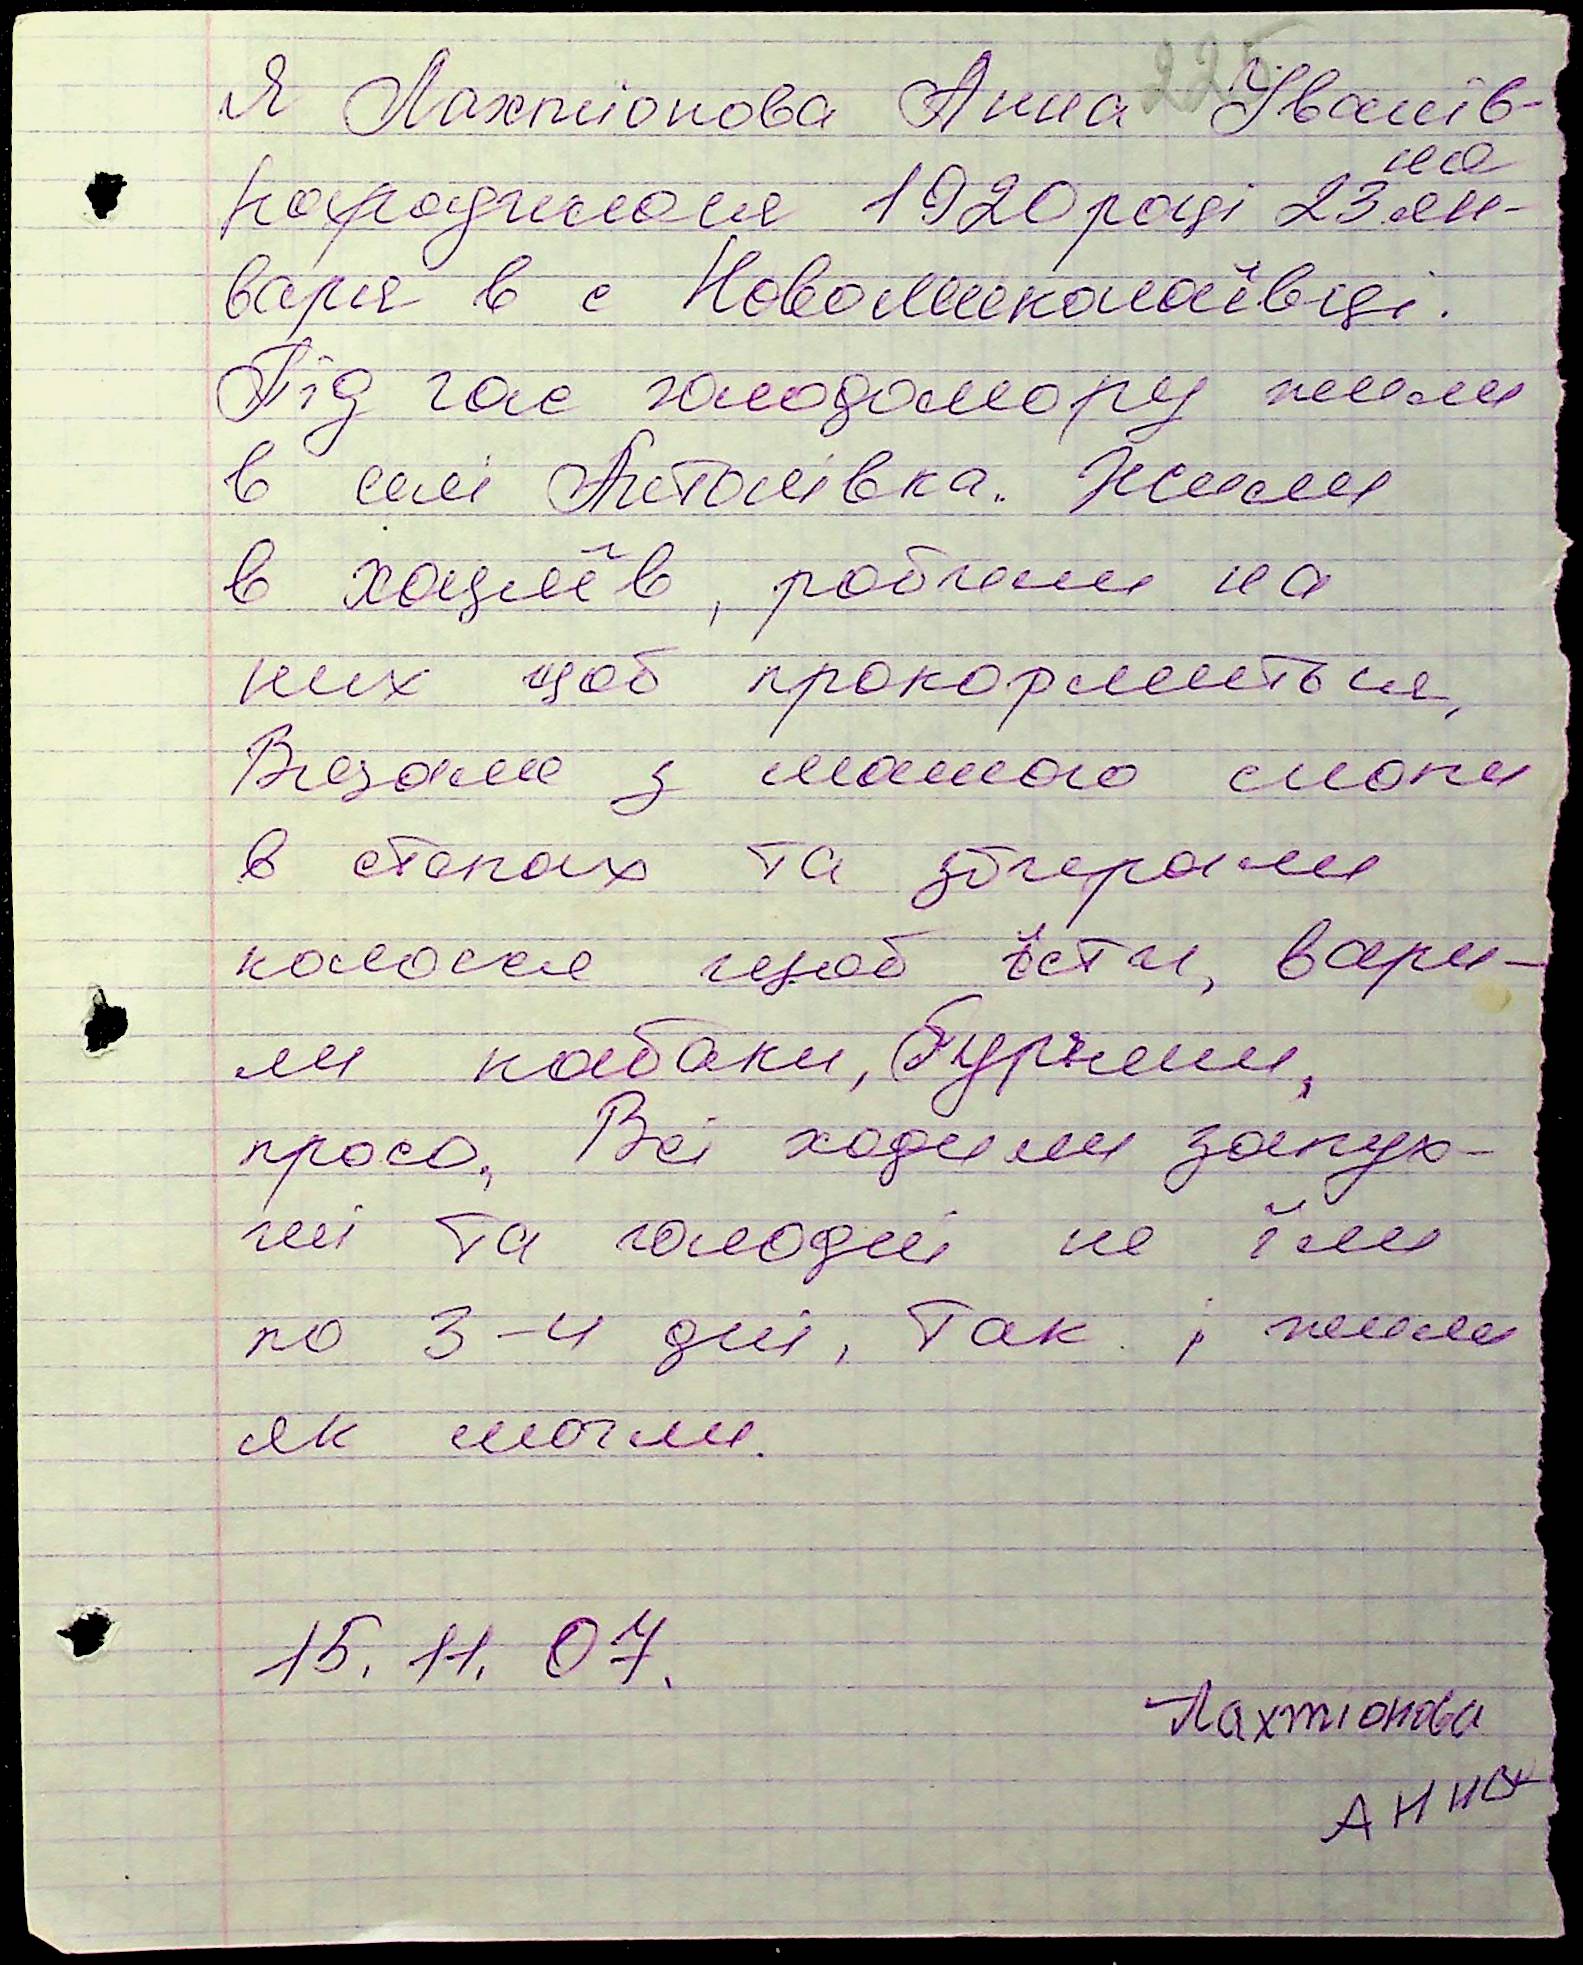 225
Я Лахтіонова Анна Іванів-
на
народилася 1920 році 23 ян-
варя в с Новомиколаївці.
Під час голодомору жили
в селі Антонівка. Жили
в хазяїв, робили на
них щоб прокормиться,
Вчезали з мамою снопи
в степах та збирали
колоски щоб їсти, вари-
ли кабаки, буряки,
просо, Всі ходили запух-
ші та голодні не їли
по 3-4 дні, так і жили
як могли.
15.11.07.
Лахтіонова
Анна